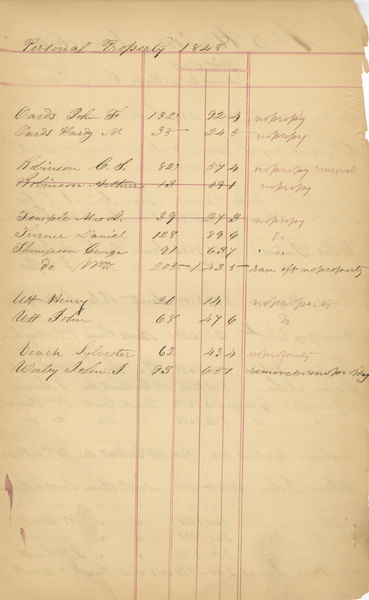 Personal Property 1828
Oards John F 132 92 4 nopropy
Oards Hardy M 35 24 5 nopropy
Robinson C. S. 82 57 4 nopropy removed
Robinson Arthur 13 09 1 nopropy
Temple 39 27 3 nopropy
Turner Daniel 128 89 6 do
Thompson George 91 63 7 do
do Wm 205 1 83 5 ran off noproperty
Utt Henry 20 14 noproperty
Utt John 68 47 6 do
Veach Sylvester 62 43 4 noproperty
John T. 93 65 1 removed